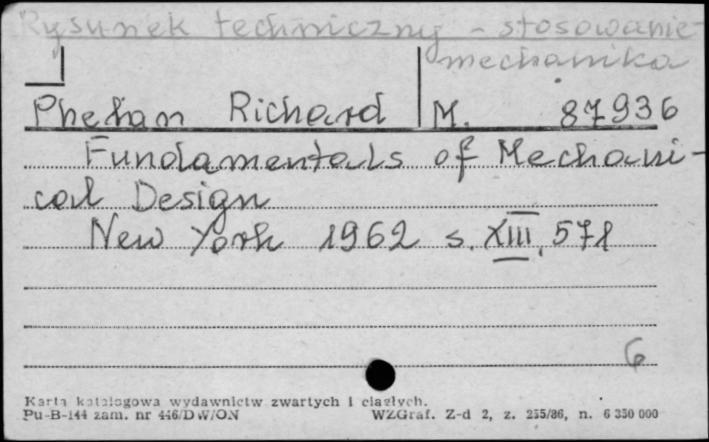 Rysunek techniczny - stosowanie
mechanika
Phelan Richard M. 87936
Fundamentals of Mechani-
cal Design
New York 1962 s. XIII, 571
6
Karta katalogowa wydawnictw zwartych i ciągłych.
Pu-B-144 zam. nr 446/DW/ON WZGraf. Z-d 2, z. 255/86, n. 6 350 000